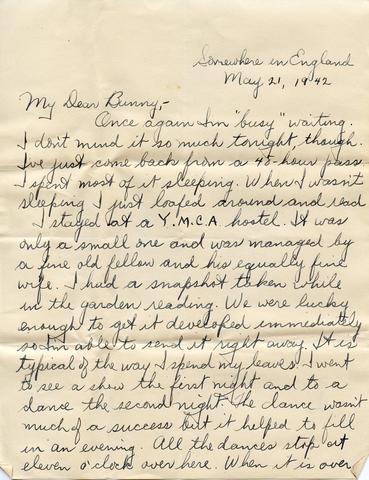 Somewhere in England
May 21, 1942
My Dear Bunny,-
Once again I'm "busy" waiting.
I don't mind it so much tonight, though.
I've just come back from a 48-hour pass
I spent most of it sleeping. When I wasn't
sleeping I just loafed around and read
I stayed at a Y.M.C.A hostel. It was
only a small one and was managed by
a fine old fellow and his equally fine
wife. I had a snapshot taken while
in the garden reading. We were lucky
enough to get it developed immediately
so I'm able to send it right away. It is
typical of the way I spend my leaves. I went
to see a show the first night and to a
dance the second night. The dance wasn't
much of a success but it helped to fill
in an evening. All the dances stop at
eleven o'clock over here. When it is over